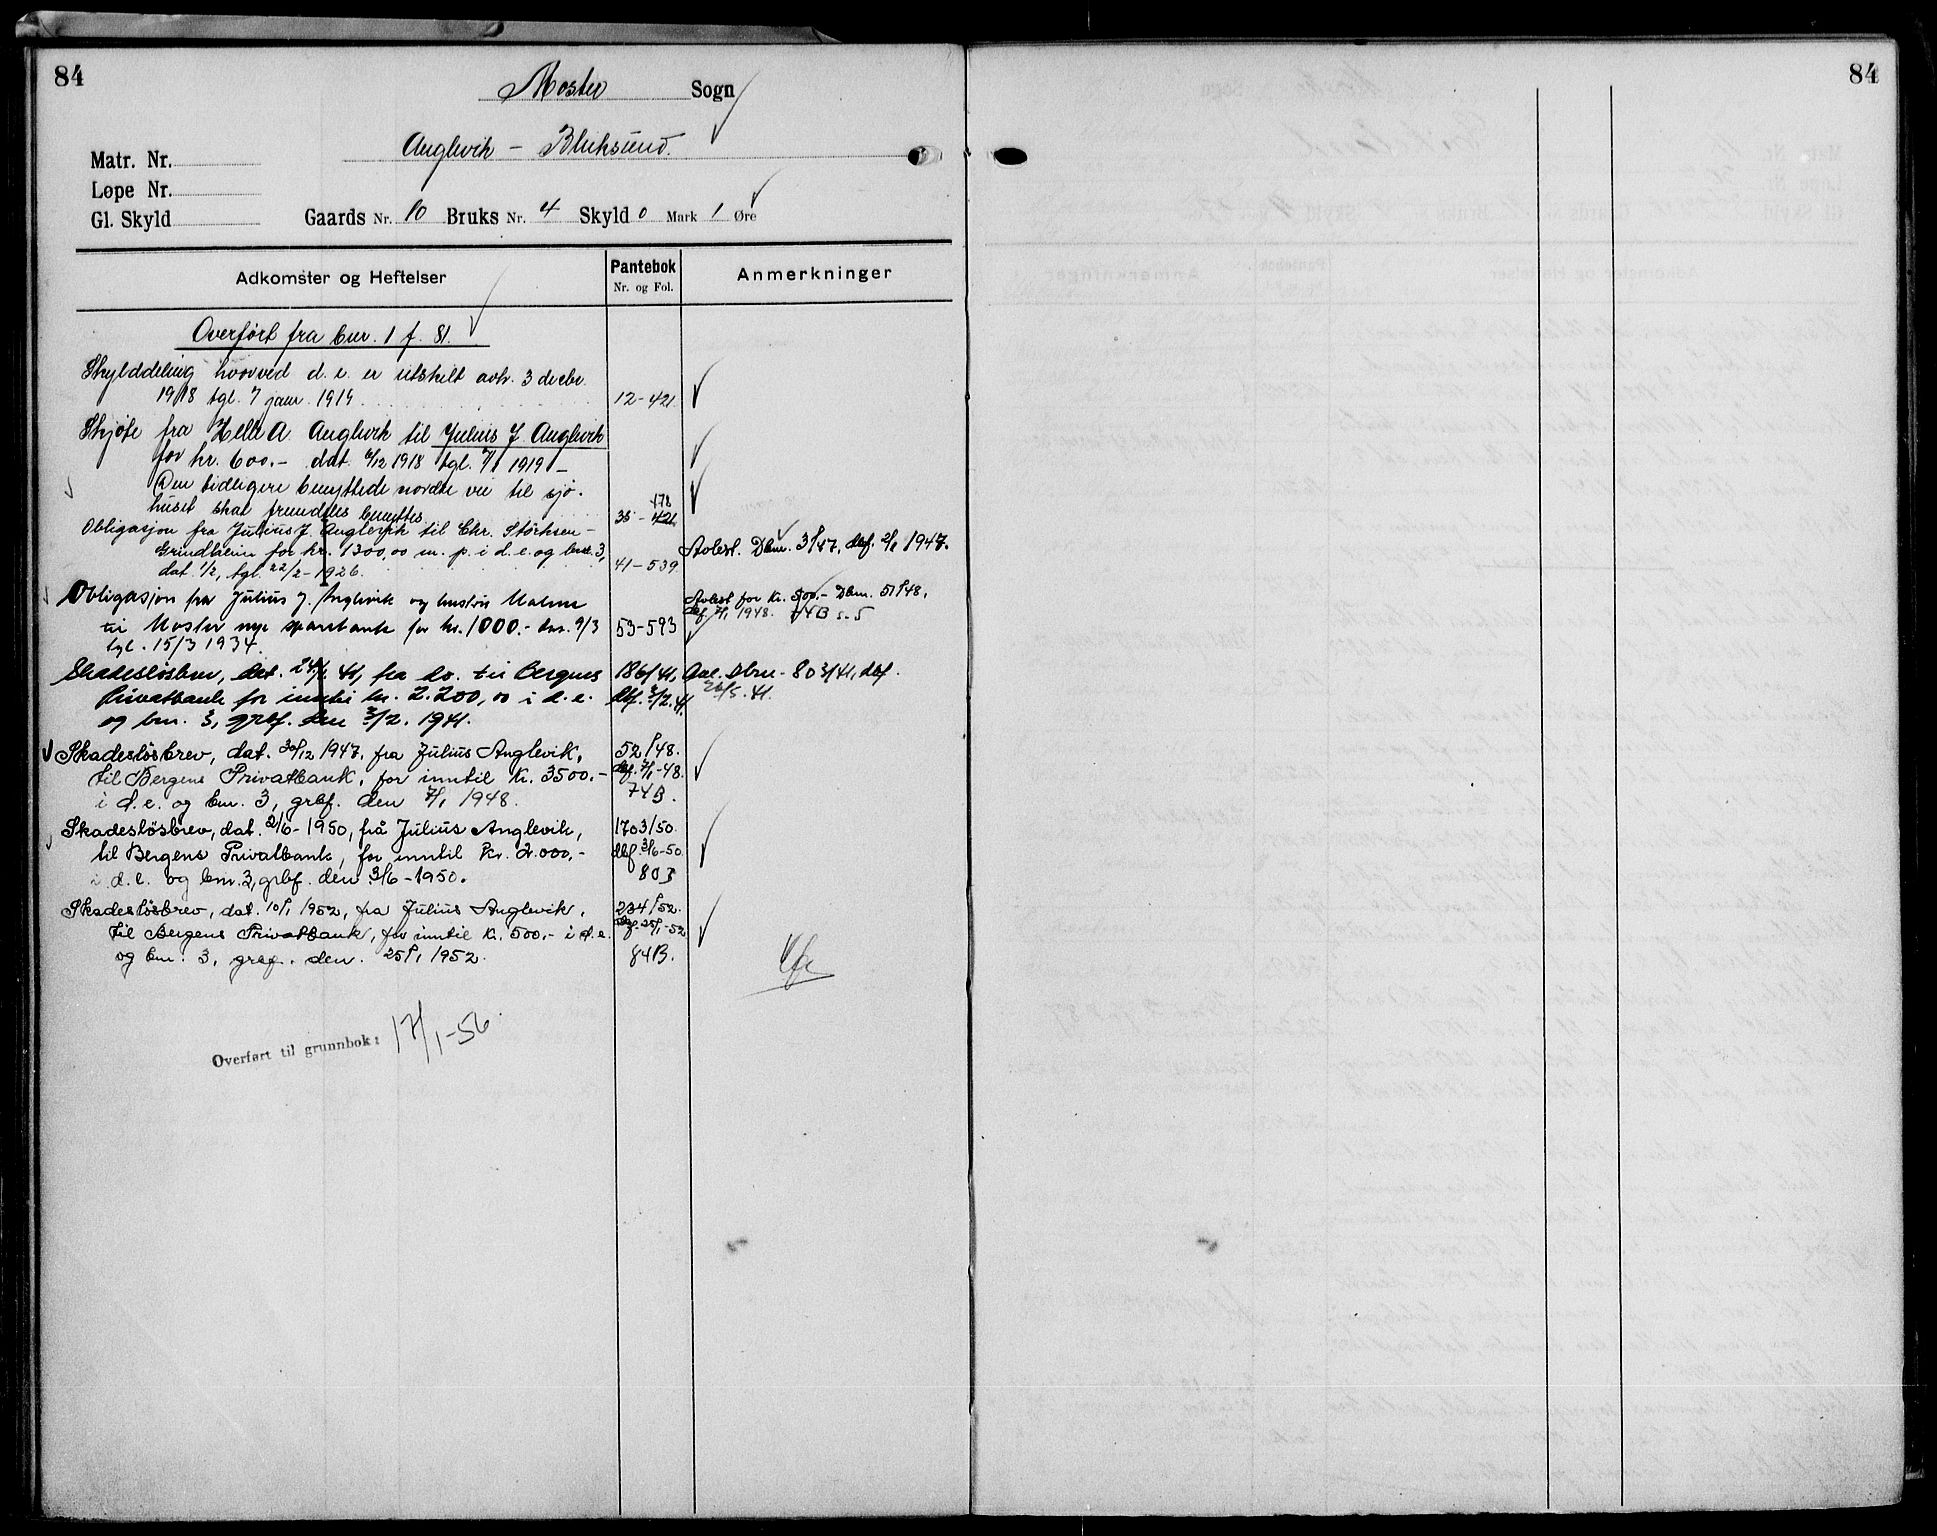 84
Moster Sogn
Matr. Nr.
Anglevik – Bleksund.
Løpe Nr.
Gl. Skyld
Gaards Nr. 10 Bruks Nr. 4 Skyld 0 Mark 1 Øre
Adkomster og Heftelser
Pantebok
Nr. og Fol.
Anmerkninger
Overført fra bur. 1 f. 81.
Skylddeling hvorved d. e. er utskilt avh. 3 decbr.
1918 tgl. 7 janr. 1919
12-421
Skjøte fra Helle A. Anglevik til Julius J. Anglevik
for kr. 600.- dat. 6/12 1918 tgl. 7/1 1919 –
Den tidligere benyttede nordre vei til sjø-
huset skal fremdeles benyttes
178
35 - 421
Obligasjon fra Julius J. Anglevik til Chr. Størksen -
Grindheim for kr. 1300,00 m. p. i d. e. og bnr. 3,
dat. 1/2, tgl. 22/2 - 1926.
41-539
Avlest. Dbnr. 3/47, dbf. 2/1 1947.
Obligasjon fra Julius J. Anglevik og hustru Malene
til Moster nye sparebank for kr. 1000.- dat. 9/3
tgl. 15/3 1934.
53-593
Avlest for kr. 500.- Dbnr. 51/48,
dbf. 7/1 1948. 74B s. 5
Skadesløsbrev, dat. 24/1 41, fra do. til Bergens
Privatbank for inntil kr. 2.200,00 i d. e.
og bnr. 3, grbf. den 3/2. 1941.
186/41,
dbf. 3/2. 41.
Avl. Dbnr. 803/41, dbf.
26/5. 41.
Skadesløsbrev, dat. 30/12 1947, fra Julius Anglevik,
til Bergens Privatbank, for inntil kr. 3500.-
i d. e. og bnr. 3, grbf. den 7/1 1948.
52/48.
dbf. 7/1-48.
74B.
Skadesløsbrev, dat. 2/6 - 1950, frå Julius Anglevik,
til Bergens Privatbank, for inntil kr. 2.000,-
i d. e. og bnr. 3, grbf. den 3/6 - 1950.
1703/50.
dbf. 3/6-50.
80B
Skadesløsbrev, dat. 10/1 1952, fra Julius Anglevik,
til Bergens Privatbank, for inntil kr. 500,- i d. e.
og bnr. 3, grbf. den. 25/1 1952.
234/52.
dbf. 25/1-52
84B.
Overført til grunnbok: 17/1-56
84